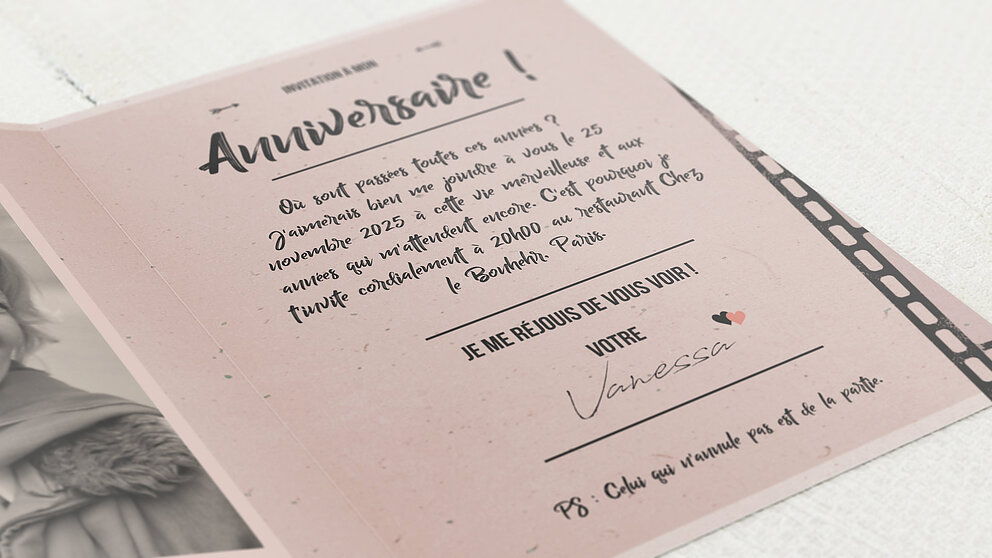 INVITATION À MON
Anniversaire !
Où sont passées toutes ces années ?
J'aimerais bien me joindre à vous le 25
novembre 2025 à cette vie merveilleuse et aux
années qui m'attendent encore. C'est pourquoi je
t'invite cordialement à 20h00 au restaurant Chez
le Bonhehr. Paris.
JE ME RÉJOUIS DE VOUS VOIR !
VOTRE
Vanessa
PS : Celui qui n'annule pas est de la partie.